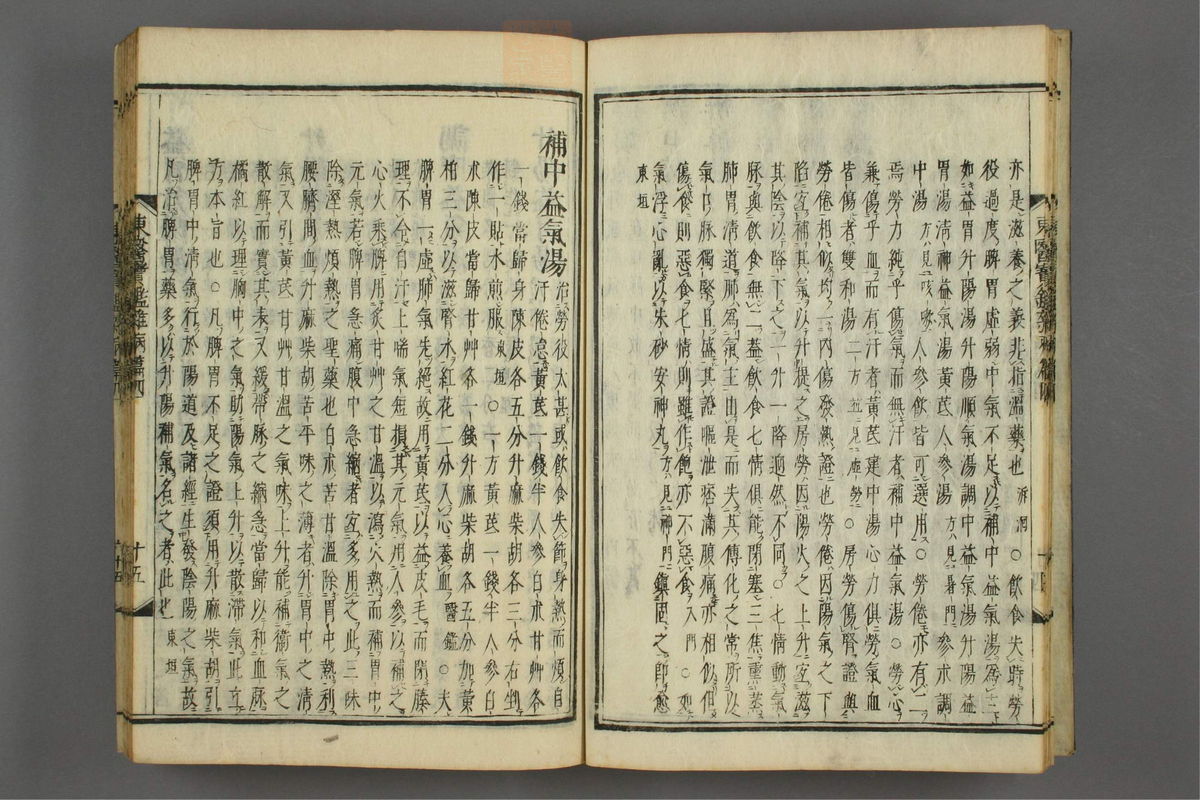 亦是滋養之義非指溫藥也 泝洄 ○飮食失時勞
役過度脾胃虛弱中氣不足以補中益氣湯爲主
如益胃升陽湯升陽順氣湯調中益氣湯升陽益
胃湯淸神益氣湯黃芪人參湯 方見暑門 參朮調
中湯 方見咳嗽 人參飮皆可選用○勞倦亦有二
焉勞力純乎傷氣而無汗者補中益氣湯○勞心
兼傷乎血而有汗者黃芪建中湯心力俱勞氣血
皆傷者雙和湯 二方並見虛勞 ○房勞傷腎證與
勞倦相似均一內傷發熱證也勞倦因陽氣之下
陷宜補其氣以升提之房勞因陽火之上升宜滋
其陰以降下之一升一降迥然不同○七情動氣
脉與飮食無二盖飮食七情俱能閉塞三焦熏蒸
肺胃淸道肺爲氣主由是而失其傳化之常所以
氣口脉獨緊且盛其證嘔泄痞滿腹痛亦相似但
傷食則惡食七情則雖作飽亦不惡食 入門 ○如
氣浮心亂以朱砂安神丸 方見神門 鎭固之卽愈
東垣
補中益氣湯 治勞役太甚或飮食失節身熱而煩自
汗倦怠黃芪一錢半人參白朮甘艸各
一錢當歸身陳皮各五分升麻柴胡各三分右剉
作一貼水煎服 東垣 ○一方黃芪一錢半人參白
朮陳皮當歸甘艸各一錢升麻柴胡各五分加黃
柏三分以滋腎水紅花二分入心養血 醫鑑 ○夫
脾胃一虛肺氣先絕故用黃芪以益皮毛而閉腠
理不令自汗上喘氣短損其元氣用人參以補之
心火乘脾用炙甘艸之甘溫以瀉火熱而補胃中
元氣若脾胃急痛腹中急縮者宜多用之此三味
除溼熱煩熱之聖藥也白朮苦甘溫除胃中熱利
腰臍間血升麻柴胡苦平味之薄者升胃中之淸
氣又引黃芪甘艸甘溫之氣味上升能補衛氣之
散解而實其表又緩帶脉之縮急當歸以和血脉
橘紅以理胸中之氣助陽氣上升以散滯氣此立
方本旨也○凡脾胃不足之證須用升麻柴胡引
脾胃中淸氣行於陽道及諸經生發陰陽之氣故
凡治脾胃藥多以升陽補氣名之者此也 東垣
東醫寶鑑雜病篇四
十五